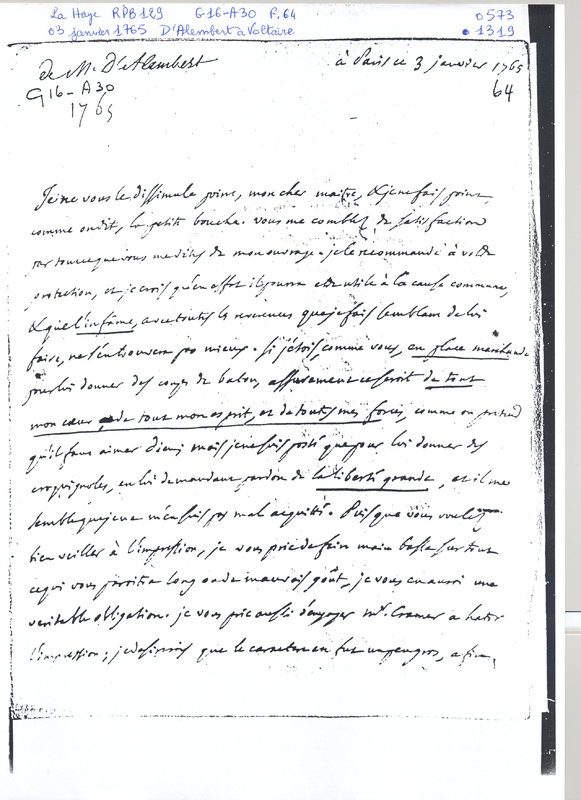 La Haye RPB 129 G16-A30 F.64 0573
03 janvier 1765 D'Alembert à Voltaire 1319
de M. D'Alembert à Paris ce 3 janvier 1765
G16-A30 64
1765
Je ne vous le dissimule point, mon cher maitre, & je ne fais point
comme on dit, la petite bouche. vous me comblez de satisfaction
par tout ce que vous me dites de mon ouvrage. je le recommande à votre
protection, et je crois qu'en effet il pourra etre utile à la cause commune,
& que l'infâme, avec toutes les reverences que je fais semblant de lui
faire, ne s'en trouvera pas mieux. si j'etois, comme vous, en place marchande
pour lui donner des coups de baton, assurement ce seroit de tout
mon cœur, de tout mon esprit, et de toutes mes forces, comme on pretend
qu'il faut aimer dieu; mais je ne suis posté que pour lui donner des
croquignoles, en lui demandant pardon de la liberté grande, et il me
semble que je ne m'en suis pas mal acquitté. Puisque vous voulez
bien veiller à l'impression, je vous prie de faire main basse sur tout
ce qui vous paroitra long ou de mauvais goût, je vous en aurai une
veritable obligation. je vous prie aussi d'engager Mr. Cramer a hater
l'impression; je desirerois que le caractere en fut un peu gros, afin